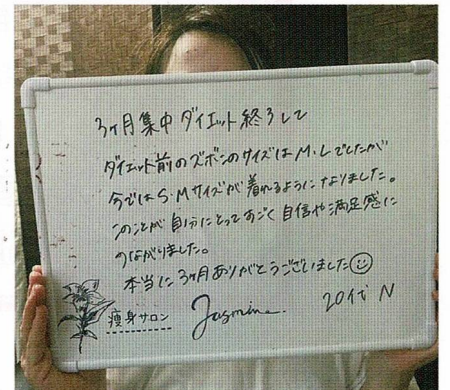 3ヶ月集中ダイエット終了して
ダイエット前のズボンのサイズはM・Lでしたが
今ではS・Mサイズが着れるようになりました。
このことが自分にとってすごく自信や満足感に
つながりました。
本当に3ヶ月ありがとうございました
痩身サロン Jasmine 20代 N